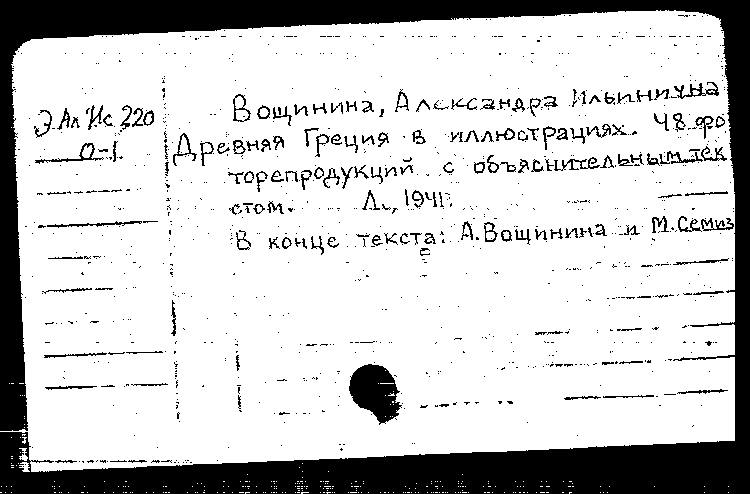 Э Ал Ис 220
0-1
Вощинина, Александра Ильинична
Древняя Греция в иллюстрациях. 48 фо
торепродукций с объяснительным тек
стом. Л., 1941.
В конце текста: А.Вощинина и М.Семиз